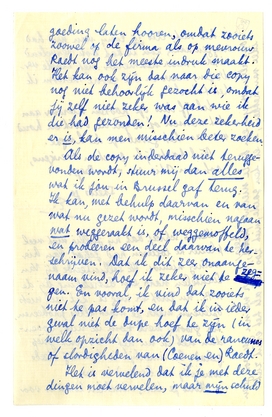 goeding laten hooren, omdat zooiets
zoowel op de firma als op mevrouw
Raedt nog het meeste indruk maakt.
Het kan ook zijn dat naar die copy
nog niet behoorlijk gezocht is, omdat
jij zelf niet zeker was aan wie ik
die had gezonden! Nu deze zekerheid
er is, kan men misschien beter zoeken.
Als de copy inderdaad niet terugge-
vonden wordt, stuur mij dan alles
wat ik jou in Brussel gaf terug.
Ik kan, met behulp daarvan en van
wat nu gezet wordt, misschien nagaan
wat weggeraakt is, of weggemoffeld,
en probeeren een deel daarvan te her-
schrijven. Dat ik dit zeer onaange-
naam vind, hoef ik zeker niet te zeg-
gen. En vooral, ik vind dat zooiets
niet te pas komt, en dat ik in ieder
geval niet de dupe hoef te zijn (in
welk opzicht dan ook) van de rancunes
of slordigheden van (Coenen en) Raedt.
Het is vervelend dat ik je met deze
dingen moet vervelen, maar mijn schuld